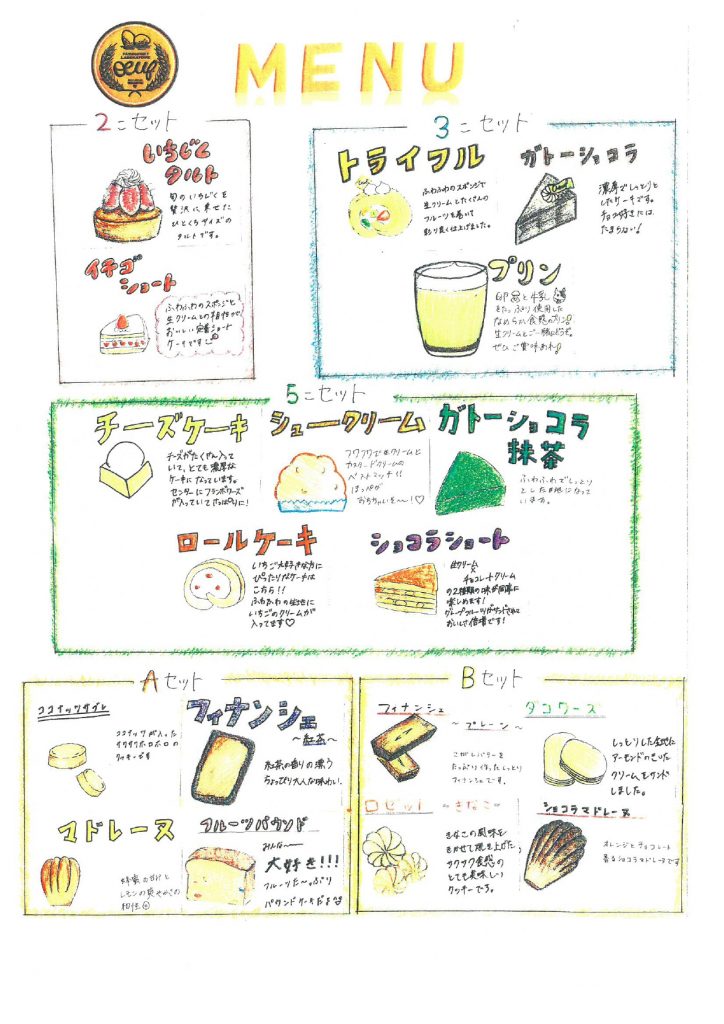 oeuf
MENU
2コセット
いちじく
タルト
旬のいちじくを
贅沢に乗せた
ひとくちサイズの
タルトです。
イチゴ
ショート
ふわふわのスポンジと
生クリームとの相性が
おいしい定番ショート
ケーキです
3コセット
トライフル
ふわふわのスポンジで
生クリームとたくさんの
フルーツを巻いて
彩り良く仕上げました。
ガトーショコラ
濃厚でしっとりと
したケーキです。
チョコ好きには
たまらない!
プリン
卵と牛乳
をたっぷり使用した
なめらかな食感のプリン
生クリームとご一緒にどうぞ。
ぜひご賞味あれ
5コセット
チーズケーキ
チーズがたくさん入って
いて、とても濃厚な
ケーキになっています。
センターにフランボワーズ
が入っていてさっぱりに!
シュークリーム
フワフワで生クリームと
カスタードクリームの
ベストマッチ!!
ほっぺが
おちちゃいそ〜!♡
ガトーショコラ
抹茶
ふわふわでしっとり
とした生地になって
います。
ロールケーキ
いちご大好きな方に
ぴったりなケーキは
こちら!!
ふわふわの生地に
いちごのクリームが
入ってます♡
ショコラショート
生クリーム
×
チョコレートクリーム
の2種類の味が同時に
楽しめます!
グレープフルーツがサンドされて
おいしさ倍増です!
Aセット
ココナッツサブレ
ココナッツが入った
サクサクホロホロの
クッキーです
フィナンシェ
〜紅茶〜
紅茶の香りの漂う
ちょっぴり大人な味わい。
マドレーヌ
蜂蜜の甘さと
レモンの爽やかさの
相性
フルーツパウンド
みんな〜
大好き!!!
フルーツた〜っぷり
パウンドケーキだよ
Bセット
フィナンシェ
〜プレーン〜
こがしバターを
たっぷり使ったしっとり
フィナンシェです。
ダコワーズ
しっとりした生地に
アーモンドのきいた
クリームをサンド
しました。
ロゼット 〜きなこ〜
きなこの風味を
きかせて焼き上げた、
サクサク食感の
とても美味しい
クッキーです。
ショコラマドレーヌ
オレンジとチョコレート
香るショコラマドレーヌです